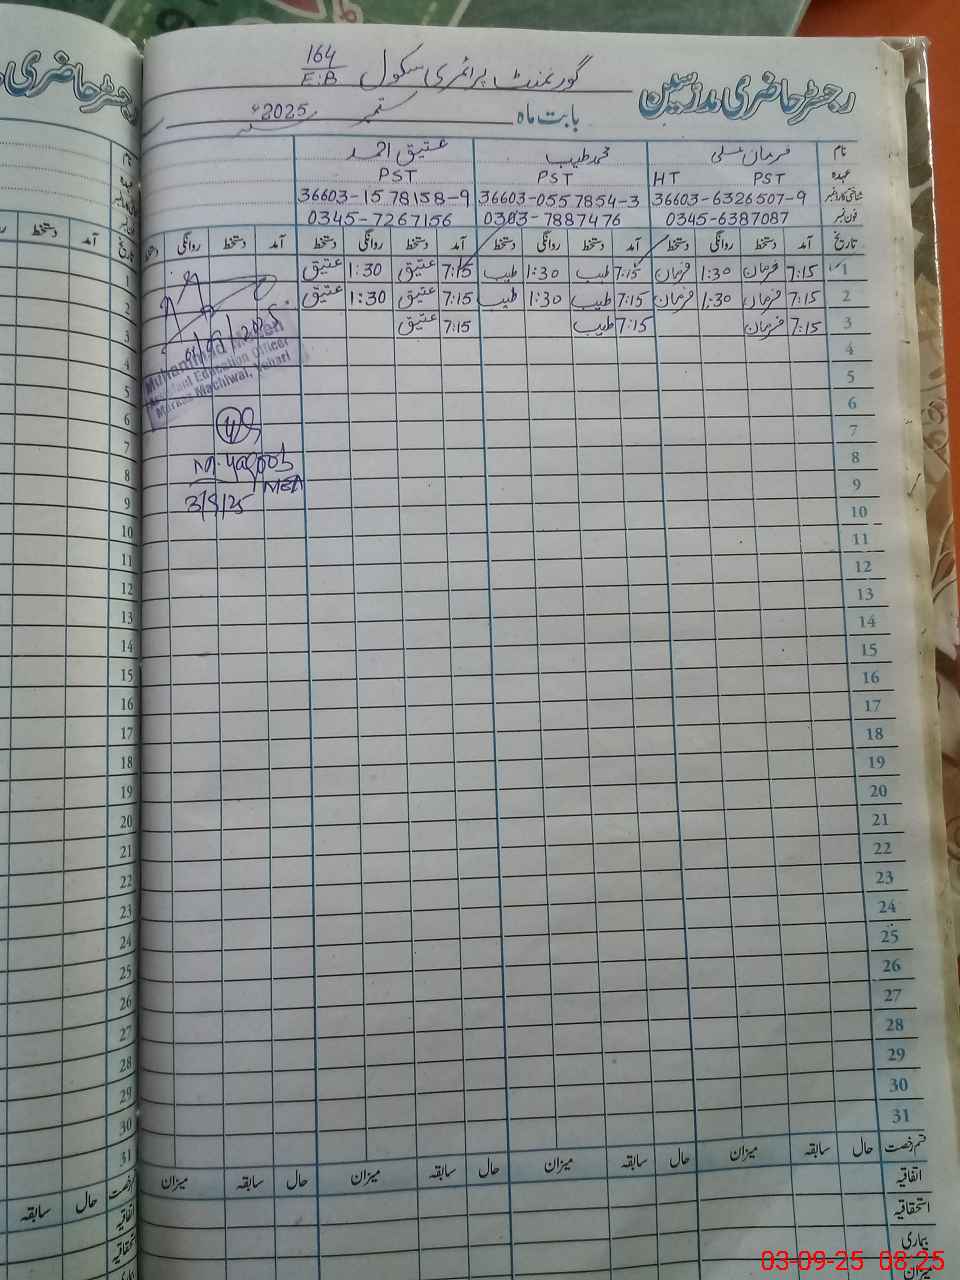 گورنمنٹ پرائمری سکول 164/E.B
رجسٹر حاضری مدرسین
بابت ماہ ستمبر 2025ء
نام فرمان علی محمد طیب عتیق احمد
عہدہ PST HT PST PST
شناختی کارڈ نمبر 36603-6326507-9 36603-0557854-3 36603-1578158-9
فون نمبر 0345-6387087 0303-7887476 0345-7267156
تاریخ آمد دستخط روانگی دستخط آمد دستخط روانگی دستخط آمد دستخط روانگی دستخط آمد دستخط روانگی دستخط
1 7:15 فرمان 1:30 فرمان 7:15 طیب 1:30 طیب 7:15 عتیق 1:30 عتیق
2 7:15 فرمان 1:30 فرمان 7:15 طیب 1:30 طیب 7:15 عتیق 1:30 عتیق
3 7:15 فرمان 7:15 طیب 7:15 عتیق
4
5
6
7
8
9
10
11
12
13
14
15
16
17
18
19
20
21
22
23
24
25
26
27
28
29
30
31
قسم رخصت حال سابقہ میزان حال سابقہ میزان حال سابقہ میزان حال سابقہ میزان
اتفاقیہ
استحقاقیہ
بیماری
میزان
Muhammad
Assistant Education Officer
Markaz Machiwal, Vehari
M. Yaqoob
MEA
3/9/25
رجسٹر حاضری
نام
عہدہ
تاریخ آمد دستخط
1
2
3
4
5
6
7
8
9
10
11
12
13
14
15
16
17
18
19
20
21
22
23
24
25
26
27
28
29
30
31
قسم رخصت حال سابقہ
اتفاقیہ
استحقاقیہ
بیماری
03-09-25 08:25